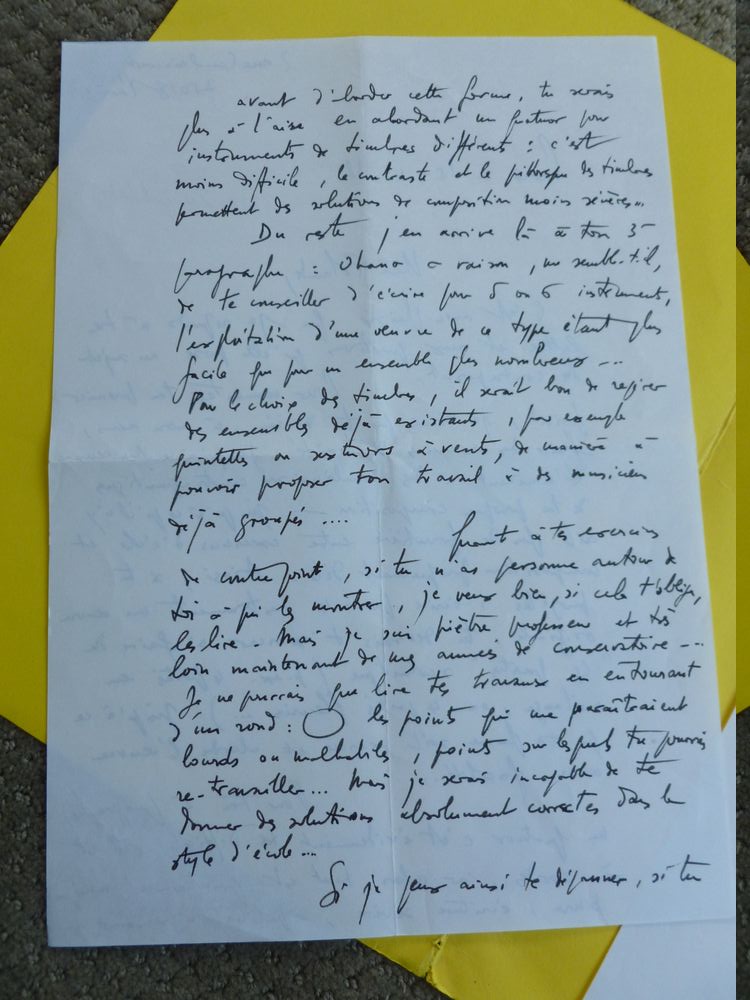 avant d'aborder cette forme, tu serais
plus à l'aise en abordant un quatuor pour
instruments de timbres différents : c'est
moins difficile, le contraste et le pittoresque des timbres
permettent des solutions de composition moins sévères...
Du reste j'en arrive là à ton 3e
paragraphe : Ohana a raison, me semble-t-il,
de te conseiller d'écrire pour 5 ou 6 instruments,
l'exploitation d'une oeuvre de ce type étant plus
facile que pour un ensemble plus nombreux ...
Pour le choix des timbres, il serait bon de
des ensembles déjà existants, par exemple
quintettes ou sextuors à vents, de manière à
pouvoir proposer ton travail à des musiciens
déjà groupés ....
Quant à tes exercices
de contrepoint, si tu n'as personne autour de
toi à qui les montrer, je veux bien, si cela t'oblige,
les lire. Mais je suis piètre professeur et très
loin maintenant de mes années de conservatoire ...
Je ne pourrais que lire tes travaux en entourant
d'un rond : les points qui me paraîtraient
lourds ou malhabiles, points sur lesquels tu pourrais
re-travailler... Mais je serais incapable de te
donner des solutions absolument correctes dans le
style d'école...
Si je peux ainsi te dépanner, si tu